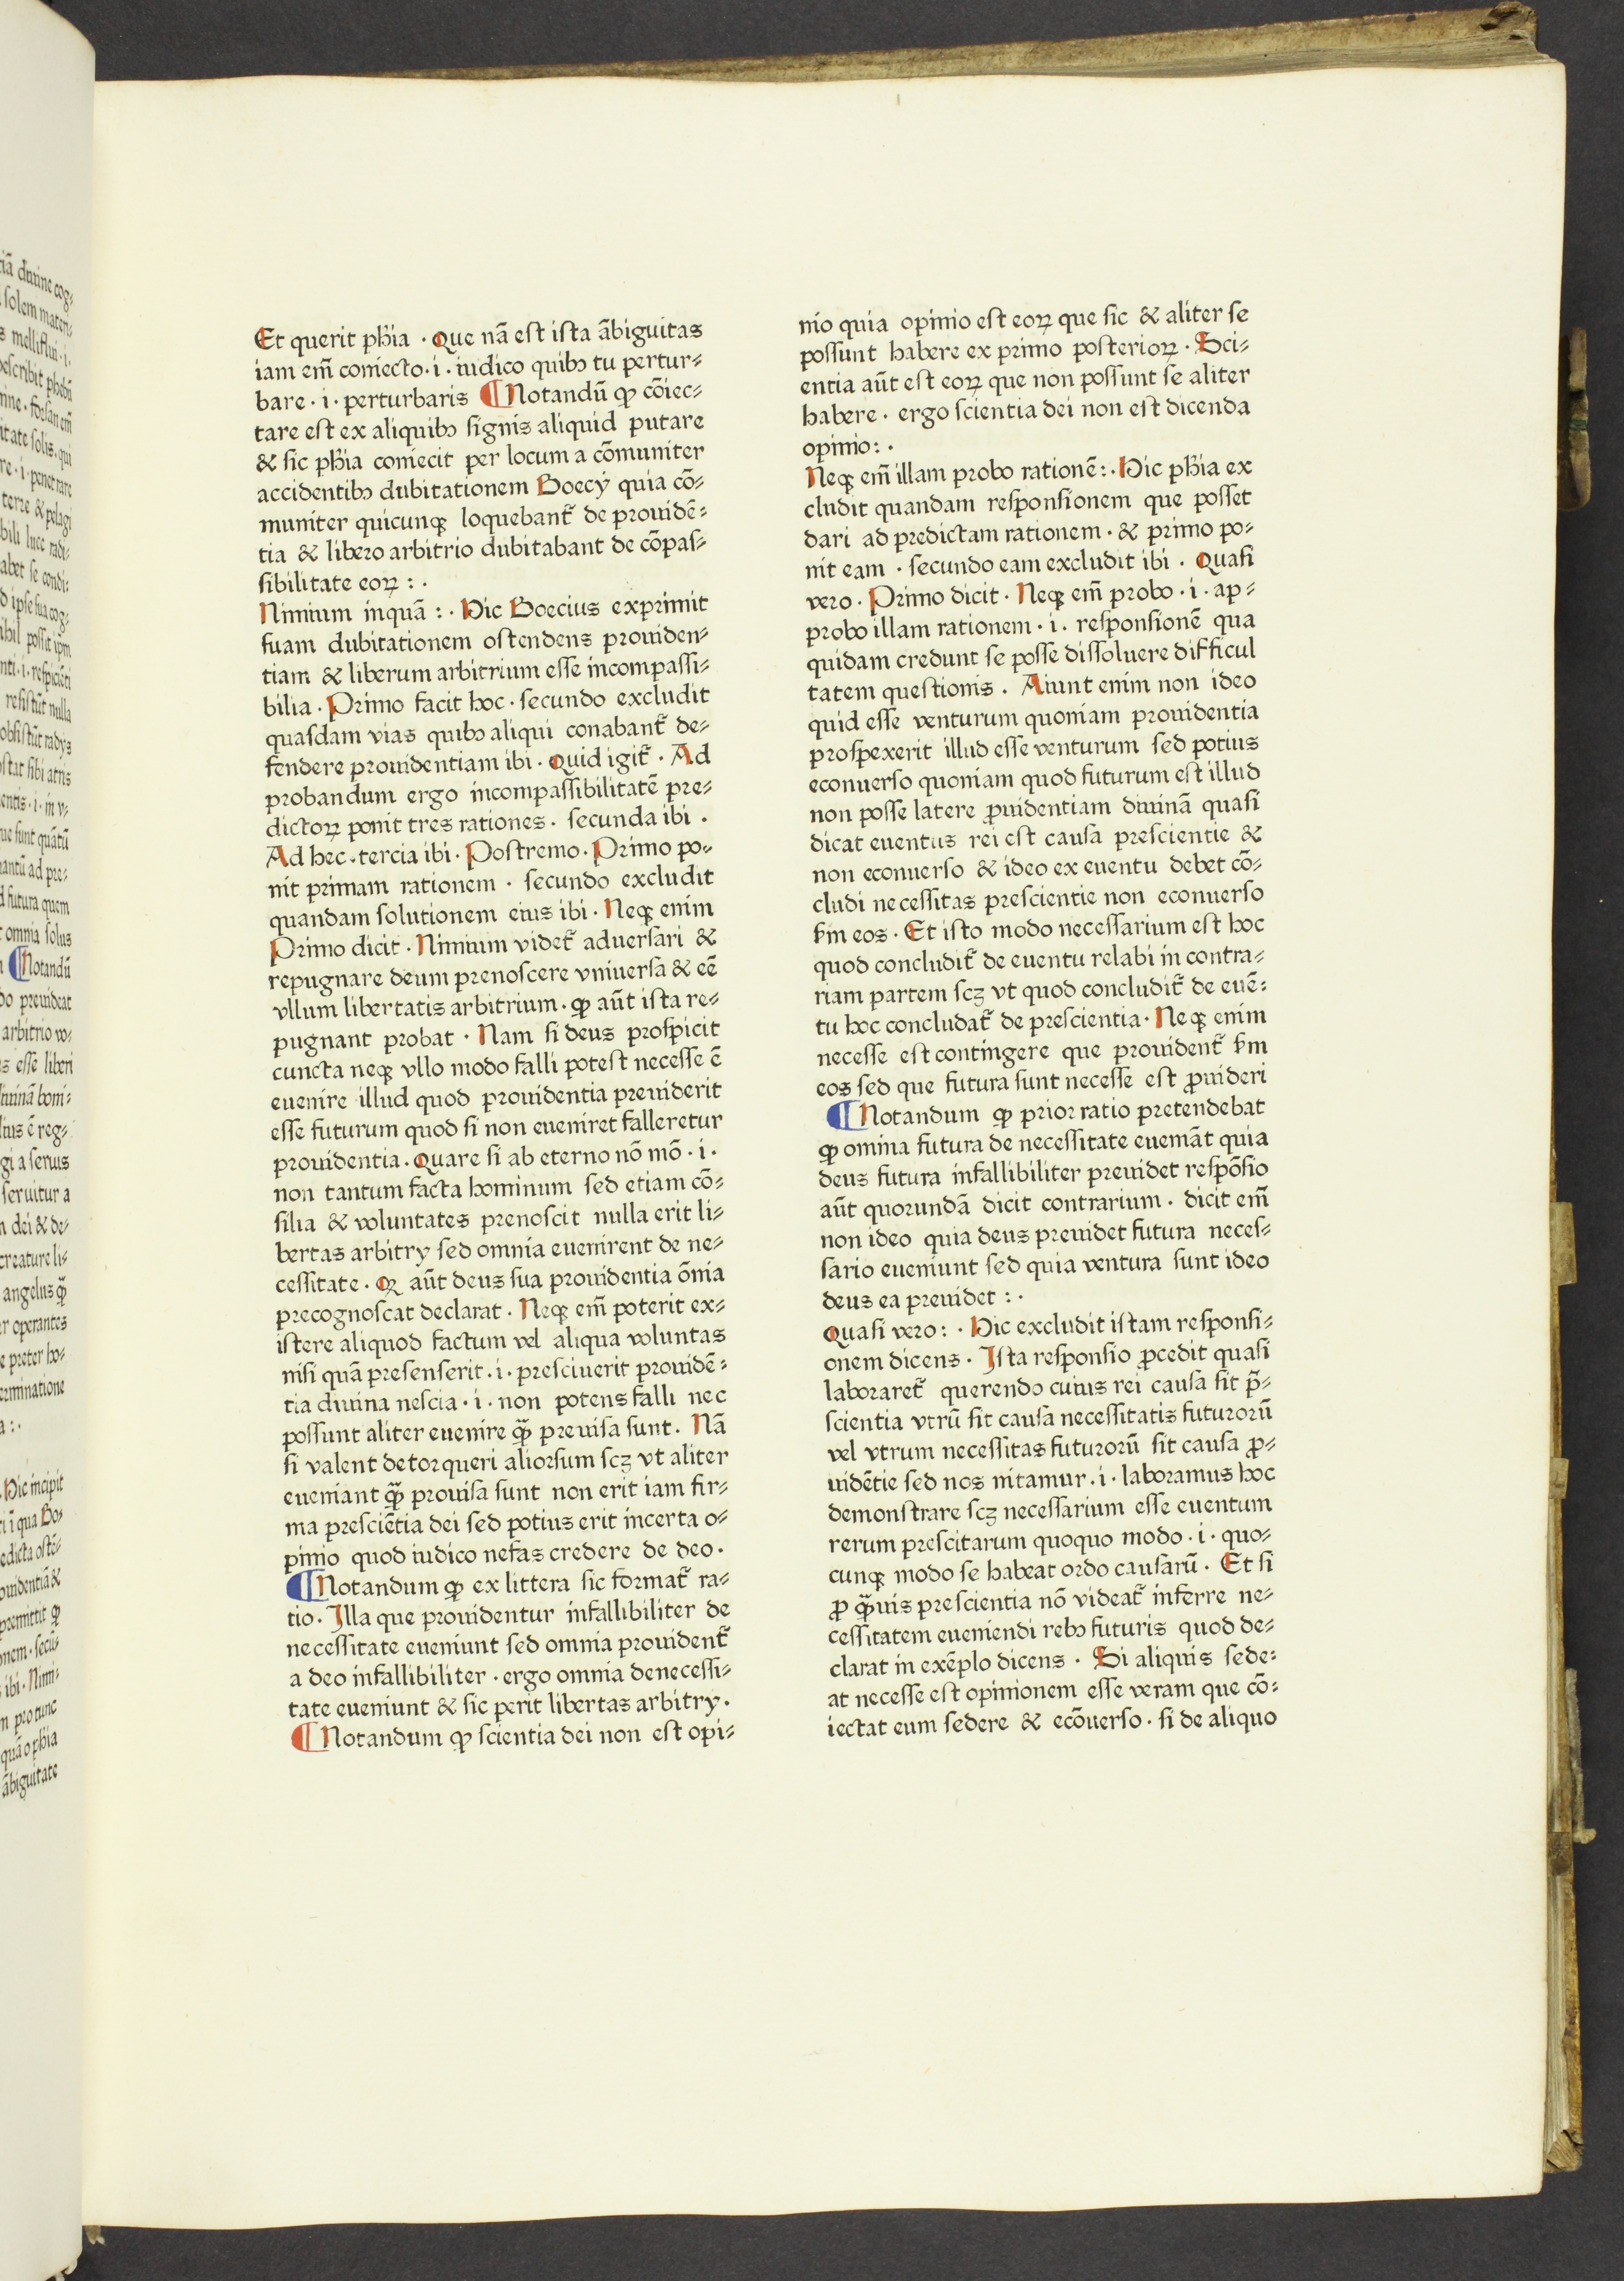 Et querit phĩa · Que nã est ista ãbiguitas
iam em̃ coniecto · i · iudico quibꝫ tu pertur⸗
bare · i · perturbaris ¶Notandũ ꝙ cõiec⸗
tare est ex aliquibꝫ signis aliquid putare
& sic phĩa coniecit per locum a cõmuniter
accidentibꝫ dubitationem Boecÿ quia cõ⸗
muniter quicunqꝫ loquebant̃ de prouidẽ⸗
tia & libero arbitrio dubitabant de cõpas⸗
sibilitate eoꝝ : ·
Nimium inquã : · Hic Boecius exprimit
suam dubitationem ostendens prouiden⸗
tiam & liberum arbitrium esse incompassi⸗
bilia · Primo facit hoc · secundo excludit
quasdam vias quibꝫ aliqui conabant̃ de⸗
fendere prouidentiam ibi · Quid igit̃ · Ad
probandum ergo incompassibilitatẽ pre⸗
dictoꝝ ponit tres rationes · secunda ibi ·
Ad hec · tercia ibi · Postremo · Primo po⸗
nit primam rationem · secundo excludit
quandam solutionem eius ibi · Neqꝫ enim
Primo dicit · Nimium videt̃ aduersari &
repugnare deum prenoscere vniuersa & eẽ
vllum libertatis arbitrium · ꝙ aũt ista re⸗
pugnant probat · Nam si deus prospicit
cuncta neqꝫ vllo modo falli potest necesse ẽ
euenire illud quod prouidentia preuiderit
esse futurum quod si non eueniret falleretur
prouidentia · Quare si ab eterno nõ mõ · i ·
non tantum facta hominum sed etiam cõ⸗
silia & voluntates prenoscit nulla erit li⸗
bertas arbitrÿ sed omnia euenirent de ne⸗
cessitate · Qꝝ aũt deus sua prouidentia õnia
precognoscat declarat · Neqꝫ em̃ poterit ex⸗
istere aliquod factum vel aliqua voluntas
nisi quã presenserit · i · presciuerit prouidẽ⸗
tia diuina nescia · i · non potens falli nec
possunt aliter euenire ꝙ̃ preuisa sunt · Nã
si valent detorqueri aliorsum scꝫ vt aliter
eueniant ꝙ̃ prouisa sunt non erit iam fir⸗
ma presciẽtia dei sed potius erit incerta o⸗
pinio quod iudico nefas credere de deo ·
¶Notandum ꝙ ex littera sic format̃ ra⸗
tio · Illa que prouidentur infallibiliter de
necessitate eueniunt sed omnia prouident̃
a deo infallibiliter · ergo omnia denecessi⸗
tate eueniunt & sic perit libertas arbitrÿ ·
¶Notandum ꝙ scientia dei non est opi⸗
nio quia opinio est eoꝝ que sic & aliter se
possunt habere ex primo posterioꝝ · Sci⸗
entia aũt est eoꝝ que non possunt se aliter
habere · ergo scientia dei non est dicenda
opinio : ·
Neqꝫ em̃ illam probo rationẽ : · Hic phĩa ex
cludit quandam responsionem que posset
dari ad predictam rationem · & primo po⸗
nit eam · secundo eam excludit ibi · Quasi
vero · Primo dicit · Neqꝫ em̃ probo · i · ap⸗
probo illam rationem · i · responsionẽ qua
quidam credunt se posse dissoluere difficul
tatem questionis · Aiunt enim non ideo
quid esse venturum quoniam prouidentia
prospexerit illud esse venturum sed potius
econuerso quoniam quod futurum est illud
non posse latere ꝓuidentiam diuinã quasi
dicat euentus rei est causa prescientie &
non econuerso & ideo ex euentu debet cõ⸗
cludi necessitas prescientie non econuerso
ẜm eos · Et isto modo necessarium est hoc
quod concludit̃ de euentu relabi in contra⸗
riam partem scꝫ vt quod concludit̃ de euẽ⸗
tu hoc concludat̃ de prescientia · Neqꝫ enim
necesse est contingere que prouident̃ ẜm
eos sed que futura sunt necesse est ꝓuideri
¶Notandum ꝙ prior ratio pretendebat
ꝙ omnia futura de necessitate eueniãt quia
deus futura infallibiliter preuidet respõsio
aũt quorundã dicit contrarium · dicit em̃
non ideo quia deus preuidet futura neces⸗
sario eueniunt sed quia ventura sunt ideo
deus ea preuidet : ·
Quasi vero : · Hic excludit istam responsi⸗
onem dicens · Ista responsio ꝓcedit quasi
laboraret̃ querendo cuius rei causa sit p̃⸗
scientia vtrũ sit causa necessitatis futurorũ
vel vtrum necessitas futurorũ sit causa ꝓ⸗
uidẽtie sed nos nitamur · i · laboramus hoc
demonstrare scꝫ necessarium esse euentum
rerum prescitarum quoquo modo · i · quo⸗
cunqꝫ modo se habeat ordo causarũ · Et si
ꝓ ꝙ̃uis prescientia nõ videat̃ inferre ne⸗
cessitatem eueniendi rebꝫ futuris quod de⸗
clarat in exẽplo dicens · Si aliquis sede⸗
at necesse est opinionem esse veram que cõ⸗
iectat eum sedere & ecõuerso · si de aliquo